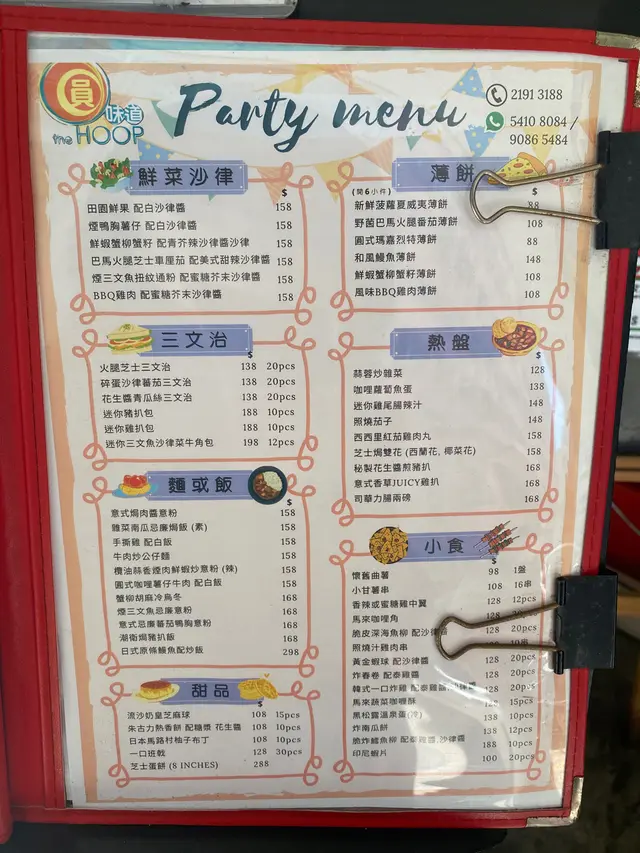 圓
味道
the HOOP
Party menu
2191 3188
5410 8084 /
9086 5484
鮮菜沙律
$
田園鮮果 配白沙律醬 158
煙鴨胸薯仔 配白沙律醬 158
鮮蝦蟹柳蟹籽 配青芥辣沙律醬沙律 158
巴馬火腿芝士車厘茄 配美式甜辣沙律醬 158
煙三文魚扭紋通粉 配蜜糖芥末沙律醬 158
BBQ雞肉 配蜜糖芥末沙律醬 158
三文治
$
火腿芝士三文治 138 20pcs
碎蛋沙律蕃茄三文治 138 20pcs
花生醬青瓜絲三文治 138 20pcs
迷你豬扒包 188 10pcs
迷你雞扒包 188 10pcs
迷你三文魚沙律菜牛角包 198 12pcs
麵或飯
$
意式焗肉醬意粉 158
雜菜南瓜忌廉焗飯 (素) 158
手撕雞 配白飯 158
牛肉炒公仔麵 158
欖油蒜香煙肉鮮蝦炒意粉 (辣) 158
圓式咖哩薯仔牛肉 配白飯 158
蟹柳胡麻冷烏冬 168
煙三文魚忌廉意粉 168
意式忌廉蕃茄鴨胸意粉 168
潮衛焗豬扒飯 168
日式原條鰻魚配炒飯 298
甜品
$
流沙奶皇芝麻球 108 15pcs
朱古力熱香餅 配糖漿 花生醬 108 10pcs
日本馬路村柚子布丁 108 10pcs
一口班戟 128 30pcs
芝士蛋餅 (8 INCHES) 288
薄餅
(開6小件) $
新鮮菠蘿夏威夷薄餅 88
野菌巴馬火腿番茄薄餅 108
圓式瑪嘉烈特薄餅 88
和風鰻魚薄餅 148
鮮蝦蟹柳蟹籽薄餅 108
風味BBQ雞肉薄餅 108
熱盤
$
蒜蓉炒雜菜 128
咖哩蘿蔔魚蛋 138
迷你雞尾腸辣汁 148
照燒茄子 148
西西里紅茄雞肉丸 158
芝士焗雙花 (西蘭花, 椰菜花) 158
秘製花生醬煎豬扒 168
意式香草JUICY雞扒 168
司華力腸兩磅 168
小食
$
懷舊曲薯 98 1盤
小甘薯串 108 16串
香辣或蜜糖雞中翼 128 12pcs
馬來咖哩角 128
脆皮深海魚柳 配沙律醬 128 20pcs
照燒汁雞肉串
黃金蝦球 配沙律醬 128 20pcs
炸春卷 配泰雞醬 128 20pcs
韓式一口炸雞 配泰雞醬,沙律醬 128 20pcs
馬來蔬菜咖喱酥 128 15pcs
黑松露溫泉蛋(冷) 138 10pcs
炸南瓜餅 138 12pcs
脆炸鱈魚柳 配泰雞醬,沙律醬 188 10pcs
印尼蝦片 100 20pcs